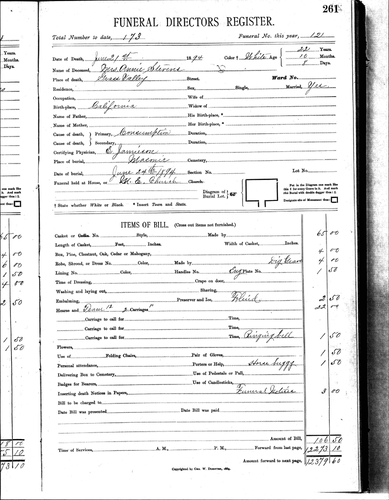 261
FUNERAL DIRECTORS REGISTER.
Total Number to date, 173 Funeral No. this year, 121
Date of Death, June 21st 1894 Color † White Age 22 Years. 10 Months. 8 Days.
Name of Deceased, Mrs Annie Stevens
Place of death, Grass Valley Street, Ward No.
Residence, Sex, Single, Married, Yes
Occupation, Wife of
Birth-place, California Widow of
Name of Father, His Birth-place, *
Name of Mother, Her Birth-place, *
Cause of death, } Primary, Consumption Duration,
Cause of death, } Secondary, Duration,
Certifying Physician, C. Jamieson
Place of burial, Masonic Cemetery,
Date of burial, June 24th 1894 Section No. Lot No.
Funeral held at House, or M. E. Church Church: Diagram of Burial Lot.
† State whether White or Black. * Insert Town and State.
ITEMS OF BILL. (Cross out items not furnished.)
Casket or Coffin No. Style, Made by 65 00
Length of Casket, Feet, Inches. Width of Casket, Inches
Box, Pine, Chestnut, Oak, Cedar or Mahogany, 4 00
Robe, Shroud, or Dress No. Color, Made by Dig Grave 4 00
Lining No. Color, Handles No. Eng Plate No. 1 50
Time of Dressing, Crape on door,
Washing and laying out, Shaving,
Embalming, Preserver and Ice, Fluid 2 50
Hearse and Team 12 2 Carriages 22 00
Carriage to call for Time,
Carriage to call for Time,
Carriage to call for Time,
Carriage to call for Ringing bell 1 50
Flowers,
Use of Folding Chairs, Pair of Gloves, 1 50
Personal attendance, Porters or Help, Horse buggy 1 50
Delivering Box to Cemetery, Use of Pedestals or Pall,
Badges for Bearers, Use of Candlesticks,
Inserting death Notices in Papers, Funeral Notices 3 00
Bill to be charged to
Date Bill was presented, Date Bill was paid,
Amount of Bill, 106 50
Time of Services, A. M., P. M. Forward from last page, 12273 10
Amount forward to next page, 12379 60
Copyright by Geo. W.